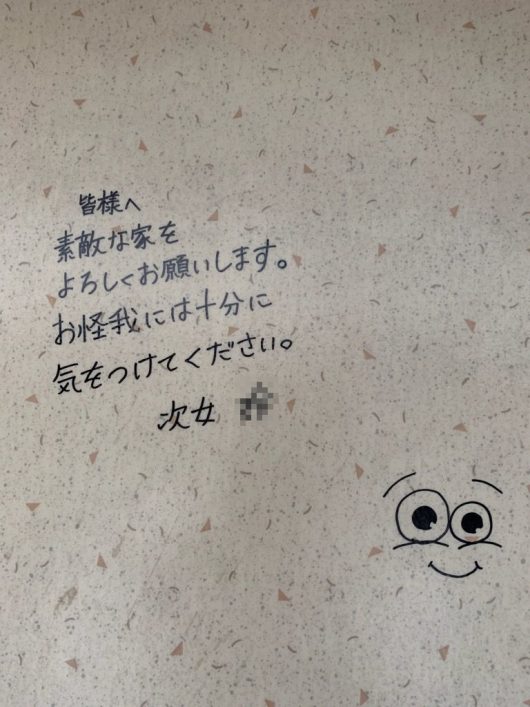 皆様へ
素敵な家を
よろしくお願いします。
お怪我には十分に
気をつけてください。
次女